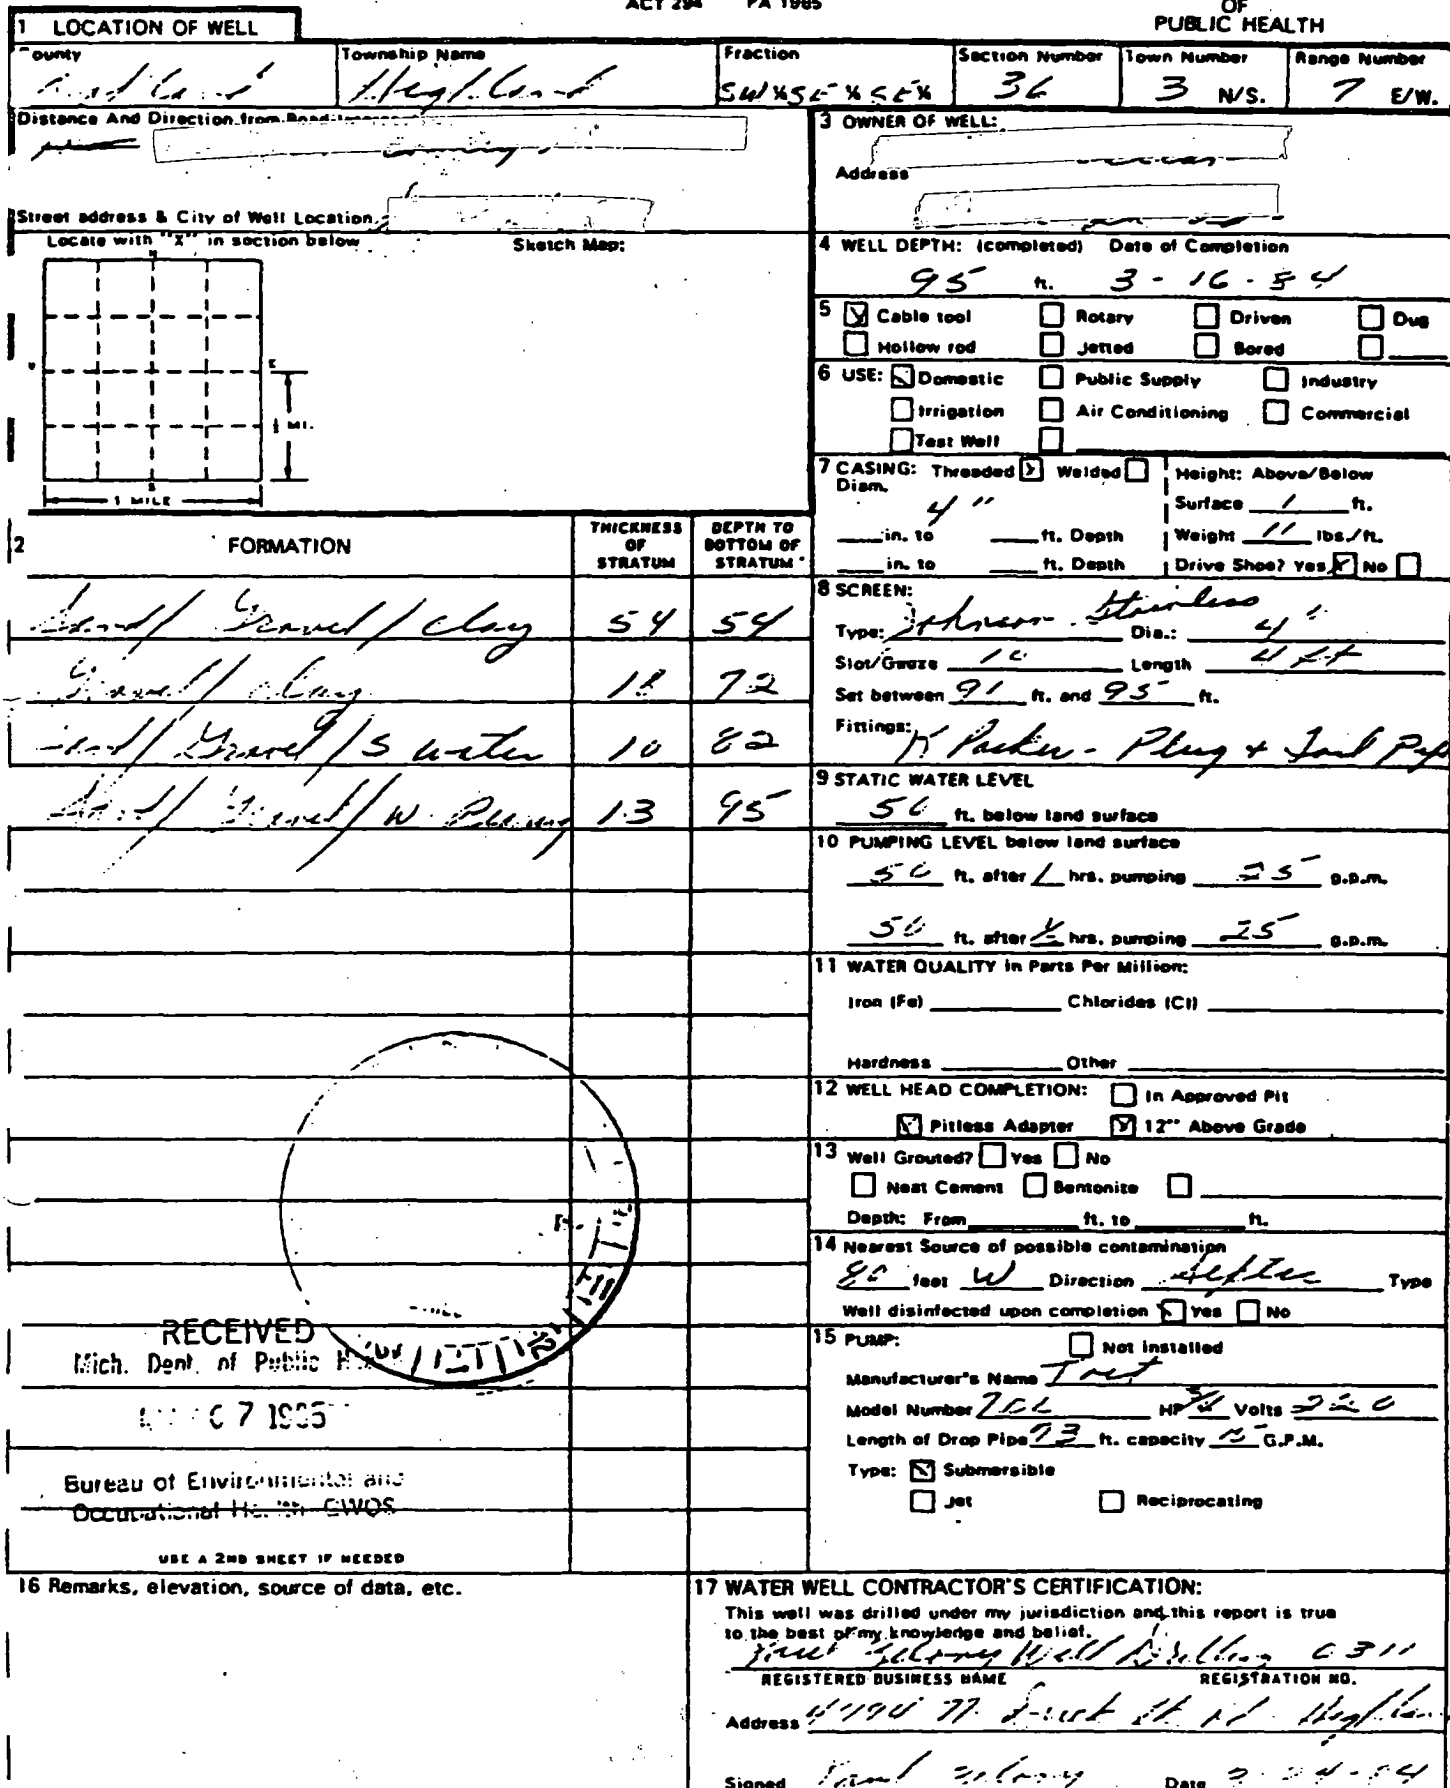 ACT 294 PA 1965
OF
PUBLIC HEALTH
1 LOCATION OF WELL
County
Township Name
Fraction
Section Number
Town Number
Range Number
Highland
SW¼SE¼SE¼
36
3 N/S.
7 E/W.
Distance And Direction from Road
Street address & City of Well Location
Locate with "X" in section below
Sketch Map:
N
W
E
S
½ MI.
1 MILE
3 OWNER OF WELL:
Address
4 WELL DEPTH: (completed) Date of Completion
95 ft. 3-16-84
5 Cable tool Rotary Driven Dug
Hollow rod Jetted Bored
6 USE: Domestic Public Supply Industry
Irrigation Air Conditioning Commercial
Test Well
7 CASING: Threaded Welded
Diam.
4"
in. to ft. Depth
in. to ft. Depth
Height: Above/Below
Surface 1 ft.
Weight 11 lbs./ft.
Drive Shoe? Yes No
2 FORMATION
THICKNESS OF STRATUM
DEPTH TO BOTTOM OF STRATUM
Sand/ Gravel/ Clay 54 54
Gravel/ Clay 18 72
Sand/ Gravel/ S water 10 82
Sand/ Gravel/ W. 13 95
8 SCREEN:
Type: Johnson Stainless Dia.: 4"
Slot/Gauze 10 Length 4 ft
Set between 91 ft. and 95 ft.
Fittings: K Packer - Plug +
9 STATIC WATER LEVEL
ft. below land surface
10 PUMPING LEVEL below land surface
ft. after 1 hrs. pumping 25 g.p.m.
ft. after hrs. pumping 25 g.p.m.
11 WATER QUALITY in Parts Per Million:
Iron (Fe) Chlorides (Cl)
Hardness Other
12 WELL HEAD COMPLETION: In Approved Pit
Pitless Adapter 12" Above Grade
13 Well Grouted? Yes No
Neat Cement Bentonite
Depth: From ft. to ft.
14 Nearest Source of possible contamination
80 feet W Direction Septic Type
Well disinfected upon completion Yes No
15 PUMP: Not Installed
Manufacturer's Name
Model Number HP 3/4 Volts 220
Length of Drop Pipe 73 ft. capacity 15 G.P.M.
Type: Submersible
Jet Reciprocating
RECEIVED
Mich. Dept. of Public
Bureau of Environmental and
Occupational Health GWQS
USE A 2ND SHEET IF NEEDED
16 Remarks, elevation, source of data, etc.
17 WATER WELL CONTRACTOR'S CERTIFICATION:
This well was drilled under my jurisdiction and this report is true
to the best of my knowledge and belief.
Well Drilling 0311
REGISTERED BUSINESS NAME REGISTRATION NO.
Address
Signed Date